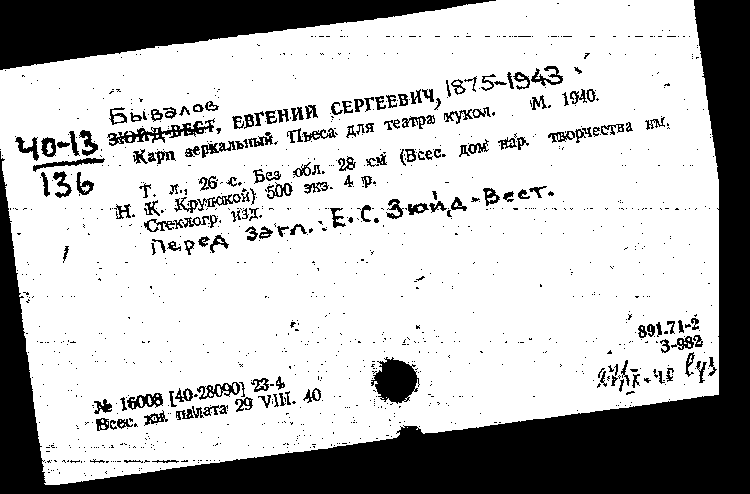 Бывалов
ЗЮЙД-ВЕСТ, ЕВГЕНИЙ СЕРГЕЕВИЧ, 1875-1943
40-13
136
Карп зеркальный. Пьеса для театра кукол. М. 1940.
Т. л., 26 с. Без обл. 28 см (Всес. дом нар. творчества им.
Н. К. Крупской) 500 экз. 4 р.
Стеклогр. изд.
Перед загл.: Е. С. Зюйд-Вест.
891.71-2
З-982
№ 16008 [40-28090] 23-4
Всес. кн. палата 29 VIII. 40